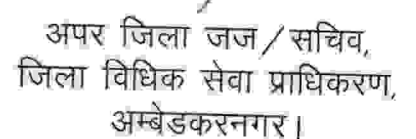 अपर जिला जज/सचिव,
जिला विधिक सेवा प्राधिकरण,
अम्बेडकरनगर।